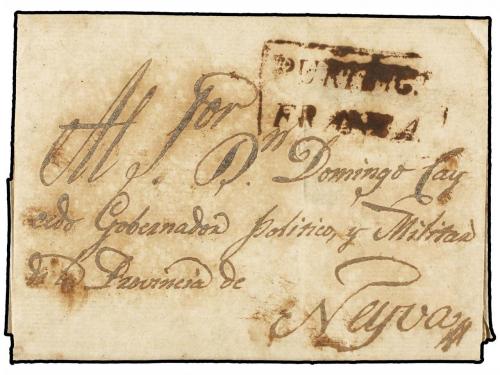 FRANCA
Al S.or
D.n Domingo Cay
cedo Gobernador Politico, y Militar
de la Provincia de
Neyva